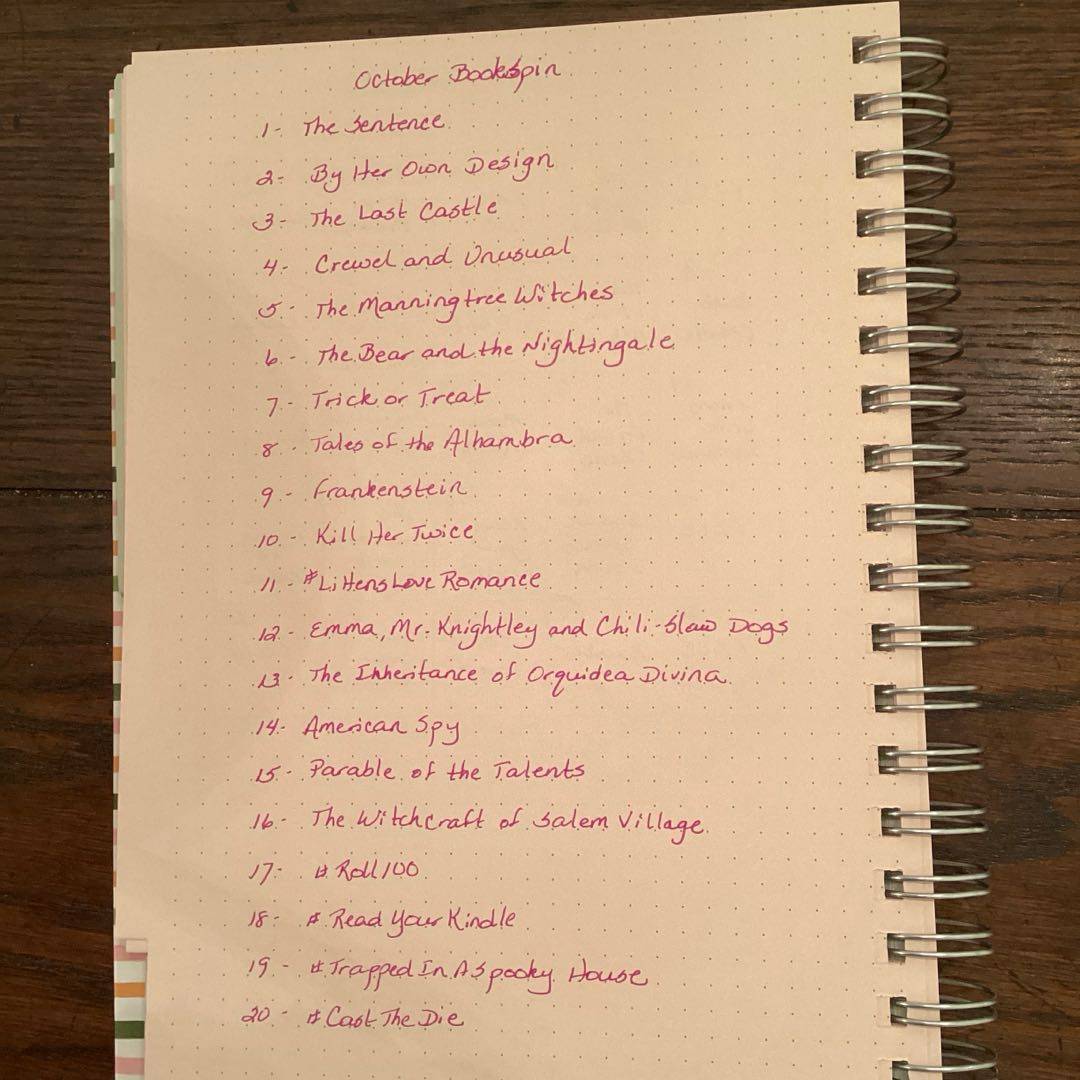 October Bookspin
1- The Sentence
2- By Her Own Design
3- The Last Castle
4- Crewel and Unusual
5- The Manningtree Witches
6- The Bear and the Nightingale
7- Trick or Treat
8- Tales of the Alhambra
9- Frankenstein
10- Kill Her Twice
11- #LittensLove Romance
12- Emma, Mr. Knightley and Chili-Slaw Dogs
13- The Inheritance of Orquidea Divina
14- American Spy
15- Parable of the Talents
16- The Witchcraft of Salem Village
17- #Roll100
18- #Read Your Kindle
19- #Trapped In A Spooky House
20- #Cast The Die